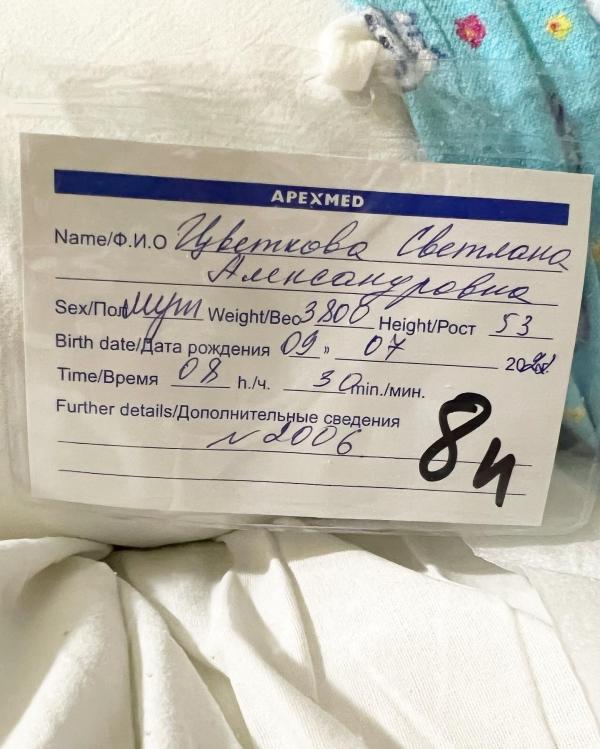 APEXMED
Name/Ф.И.О Цветкова Светлана
Александровна
Sex/Пол муж Weight/Вес 3800 Height/Рост 53
Birth date/Дата рождения 09 " 07 20
Time/Время 08 h./ч. 30 min./мин.
Further details/Дополнительные сведения
N 2006
8и